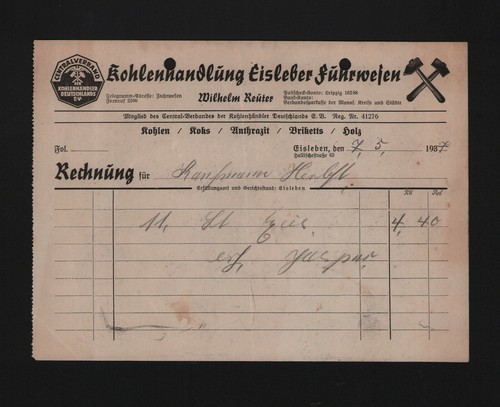 CENTRALVERBAND
KOHLENHÄNDLER
DEUTSCHLANDS
E.V.
Kohlenhandlung Eisleber Fuhrwesen
Telegramm-Adresse: Fuhrwesen
Fernruf 2506
Wilhelm Reuter
Postscheck-Konto: Leipzig
Bank-Konto:
Verbandssparkasse der Mansf. Kreise und Städte
Mitglied des Central-Verbandes der Kohlenhändler Deutschlands E.V. Reg. Nr. 41276
Kohlen / Koks / Anthrazit / Briketts / Holz
Fol.
Eisleben, den 7. 5. 1937
Hallischestraße 62
Rechnung für Kaufmann Herbst
Erfüllungsort und Gerichtsstand: Eisleben
11, 4, 40